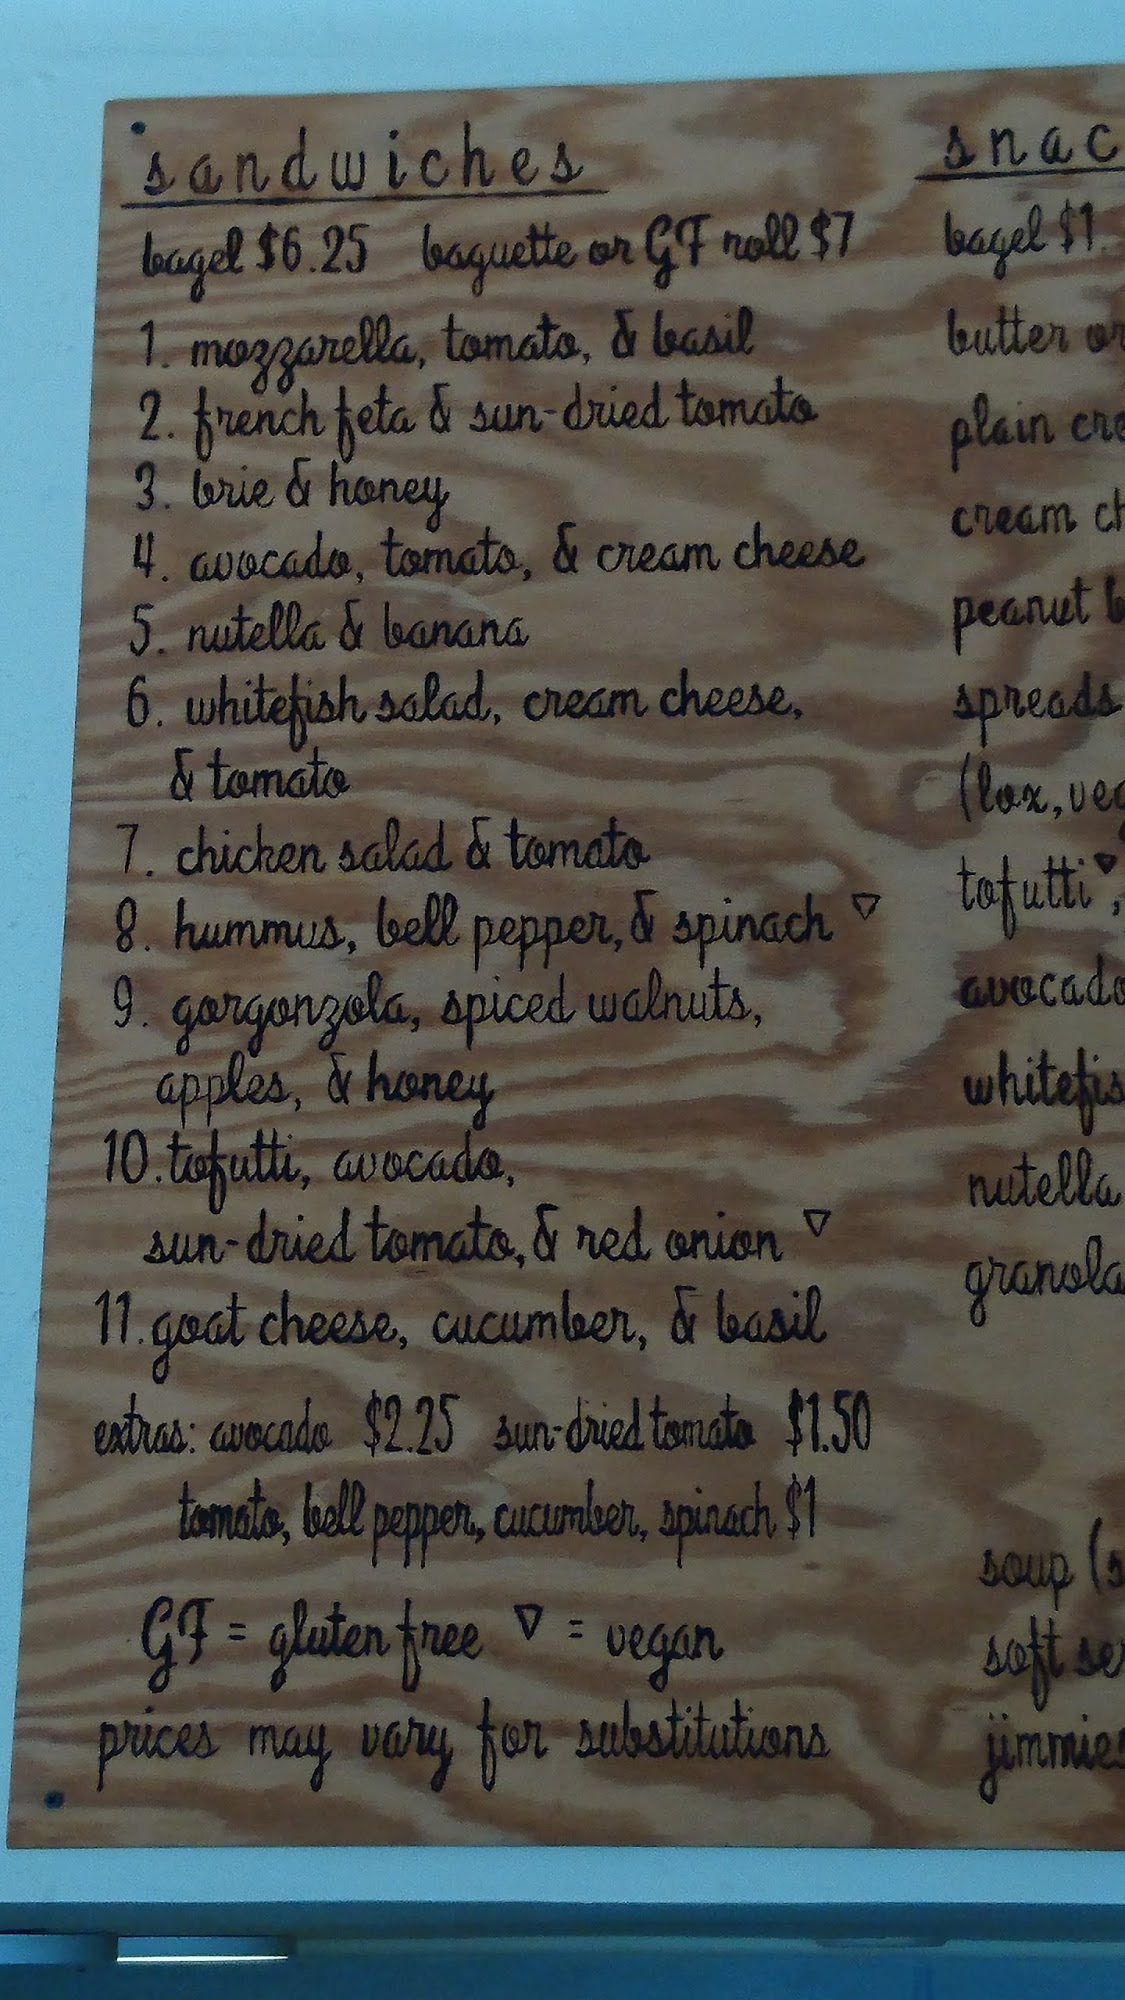 sandwiches
bagel $6.25 baguette or GF roll $7
1. mozzarella, tomato, & basil
2. french feta & sun-dried tomato
3. brie & honey
4. avocado, tomato, & cream cheese
5. nutella & banana
6. whitefish salad, cream cheese,
& tomato
7. chicken salad & tomato
8. hummus, bell pepper, & spinach ▽
9. gorgonzola, spiced walnuts,
apples, & honey
10. tofutti, avocado,
sun-dried tomato, & red onion ▽
11. goat cheese, cucumber, & basil
extras: avocado $2.25 sun-dried tomato $1.50
tomato, bell pepper, cucumber, spinach $1
GF = gluten free ▽ = vegan
prices may vary for substitutions
snac
bagel $1.
butter or
plain cre
cream ch
peanut b
spreads
(lox, veg
tofutti ▽,
avocado
whitefis
nutella
granola
soup (s
soft ser
jimmies